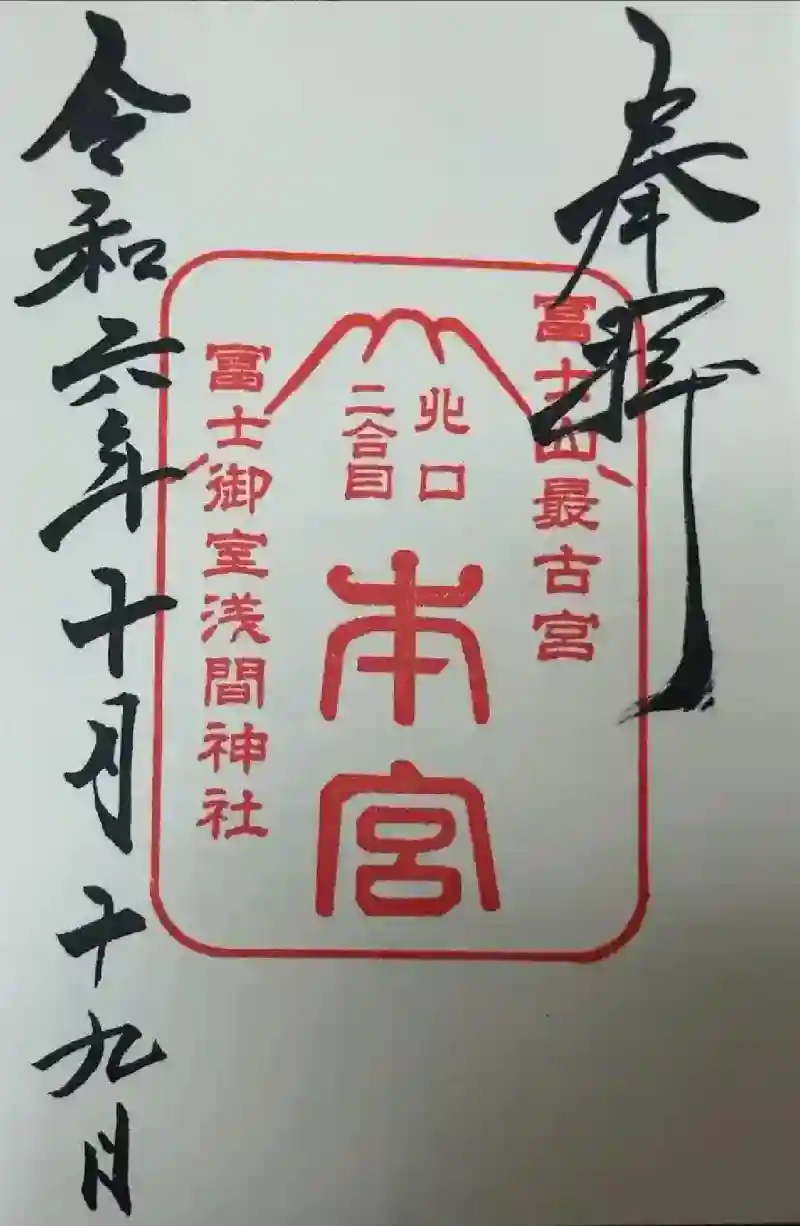 奉拝
富士山最古宮
北口
二合目
本宮
冨士御室浅間神社
令和六年十月十九日